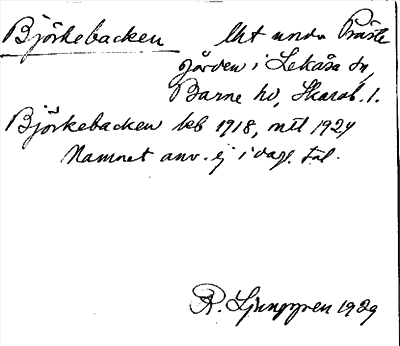 Björkebacken lht under Präst
gården i Lekåsa sn,
Barne hd, Skarab. l.
Björkebacken leb 1918, mtl 1924
Namnet anv. ej i dagl. tal.
R. Ljunggren 1929